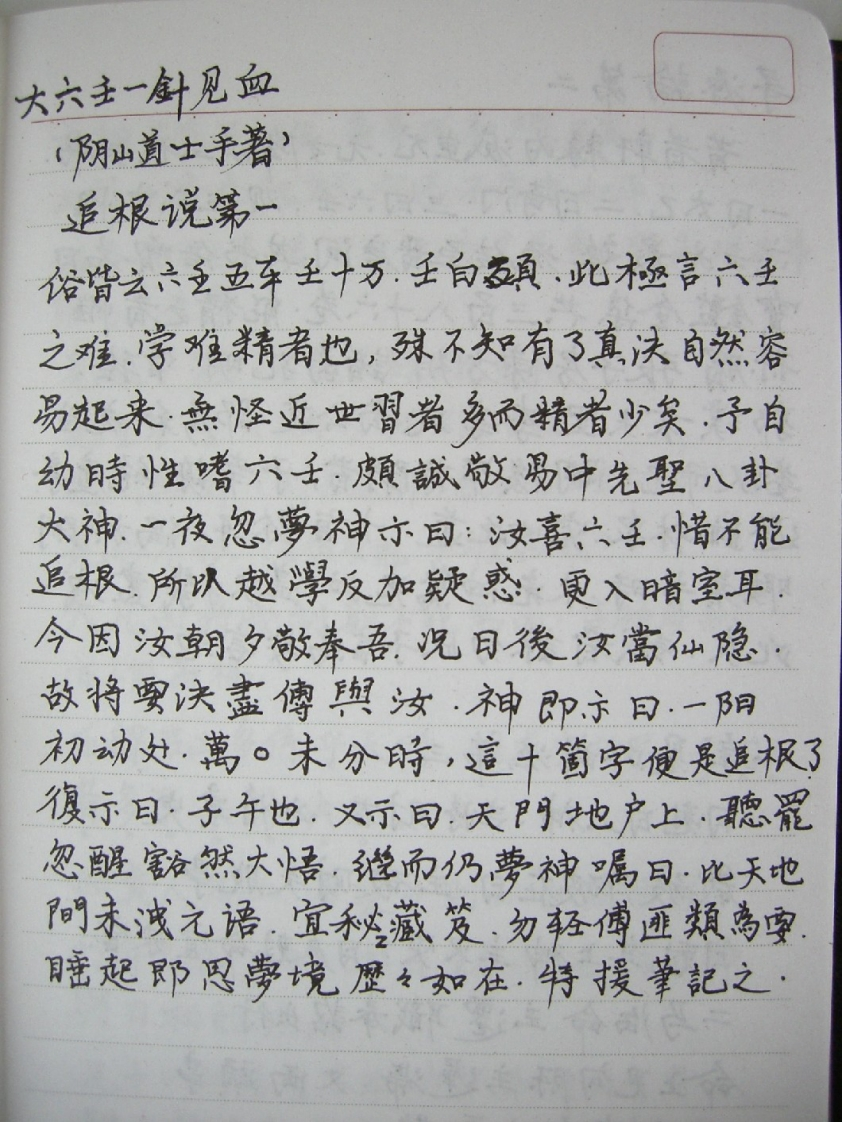 大六壬一針见血
（阴山道士手著）
追根说第一
俗皆云六壬五车壬十万.壬白頭.此極言六壬
之难.学难精者也,殊不知有了真决自然容
易起来.無怪近世習者多而精者少矣.予自
幼時性嗜六壬.頗誠敬易中先聖八卦
大神.一夜忽夢神示曰:汝喜六壬.惜不能
追根.所以越學反加疑惑.更入暗室耳.
今因汝朝夕敬奉吾.况日後汝當仙隐.
故将要决盡傳與汝.神即示曰.一阳
初动处.萬○未分時,這十箇字便是追根了
復示曰.子午也.又示曰.天門地户上.聽罷
忽醒豁然大悟.繼而仍夢神嘱曰.此天地
間未洩元语.宜秘々藏笈.勿轻傳匪類為要.
睡起即思夢境歷々如在.特援筆記之.